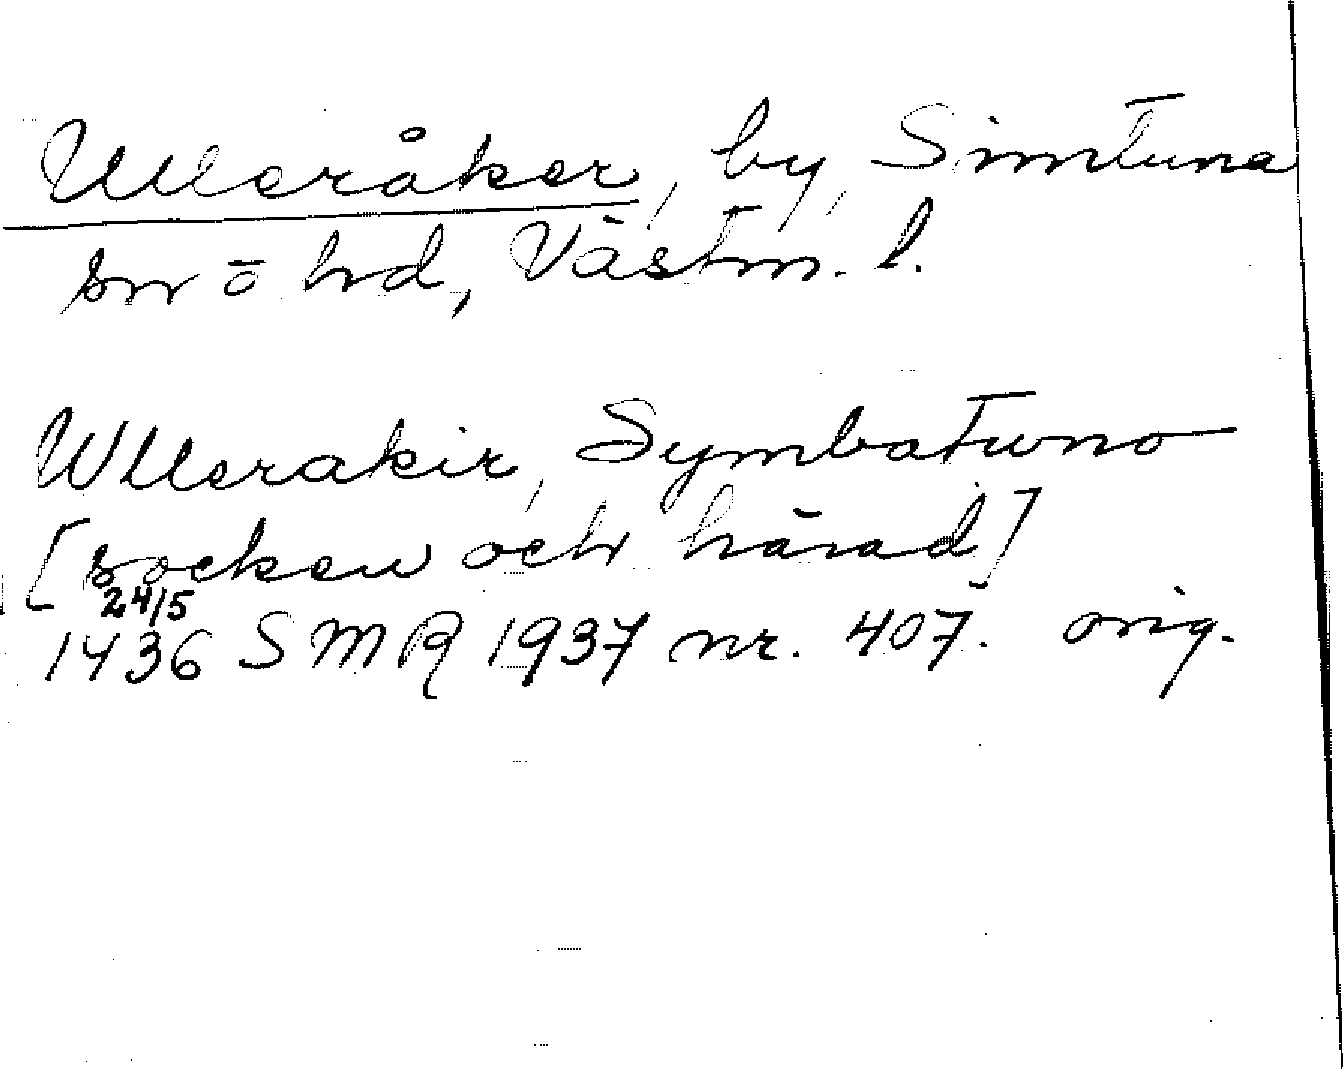 Ulleråker, by, Simtuna
sn o hd, Västm. l.
Wllerakir, Symbatuno
[socken och härad]
24/5
1436 SMR 1937 nr. 407. orig.